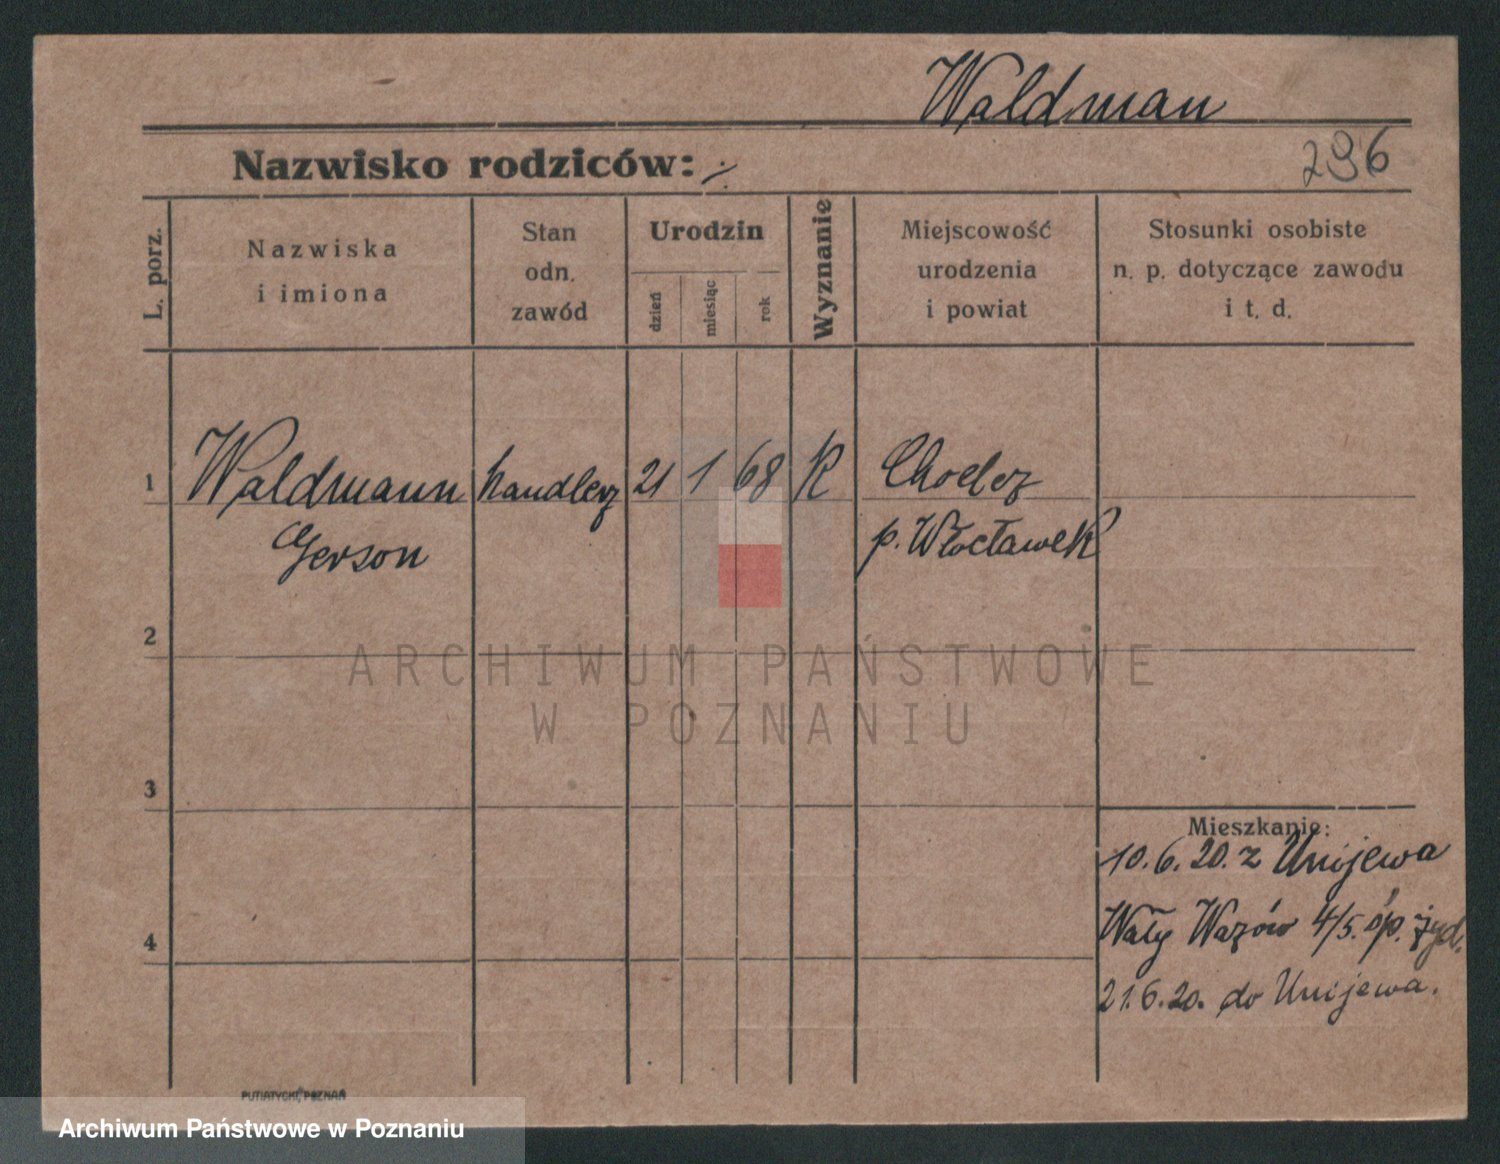 Waldman
Nazwisko rodziców:
296
L. porz.
Nazwiska
i imiona
Stan
odn.
zawód
Urodzin
dzień
miesiąc
rok
Wyznanie
Miejscowość
urodzenia
i powiat
Stosunki osobiste
n. p. dotyczące zawodu
i t. d.
1
Waldmann
Gerson
handlerz
21
1
68
Chodcz
p. Włocławek
2
3
4
Mieszkanie:
10.6.20. z Unijewa
Wały Wazów 4/5. p. żyd.
21.6.20. do Unijewa.
PUTIATYCKI, POZNAŃ
ARCHIWUM PAŃSTWOWE
W POZNANIU
Archiwum Państwowe w Poznaniu